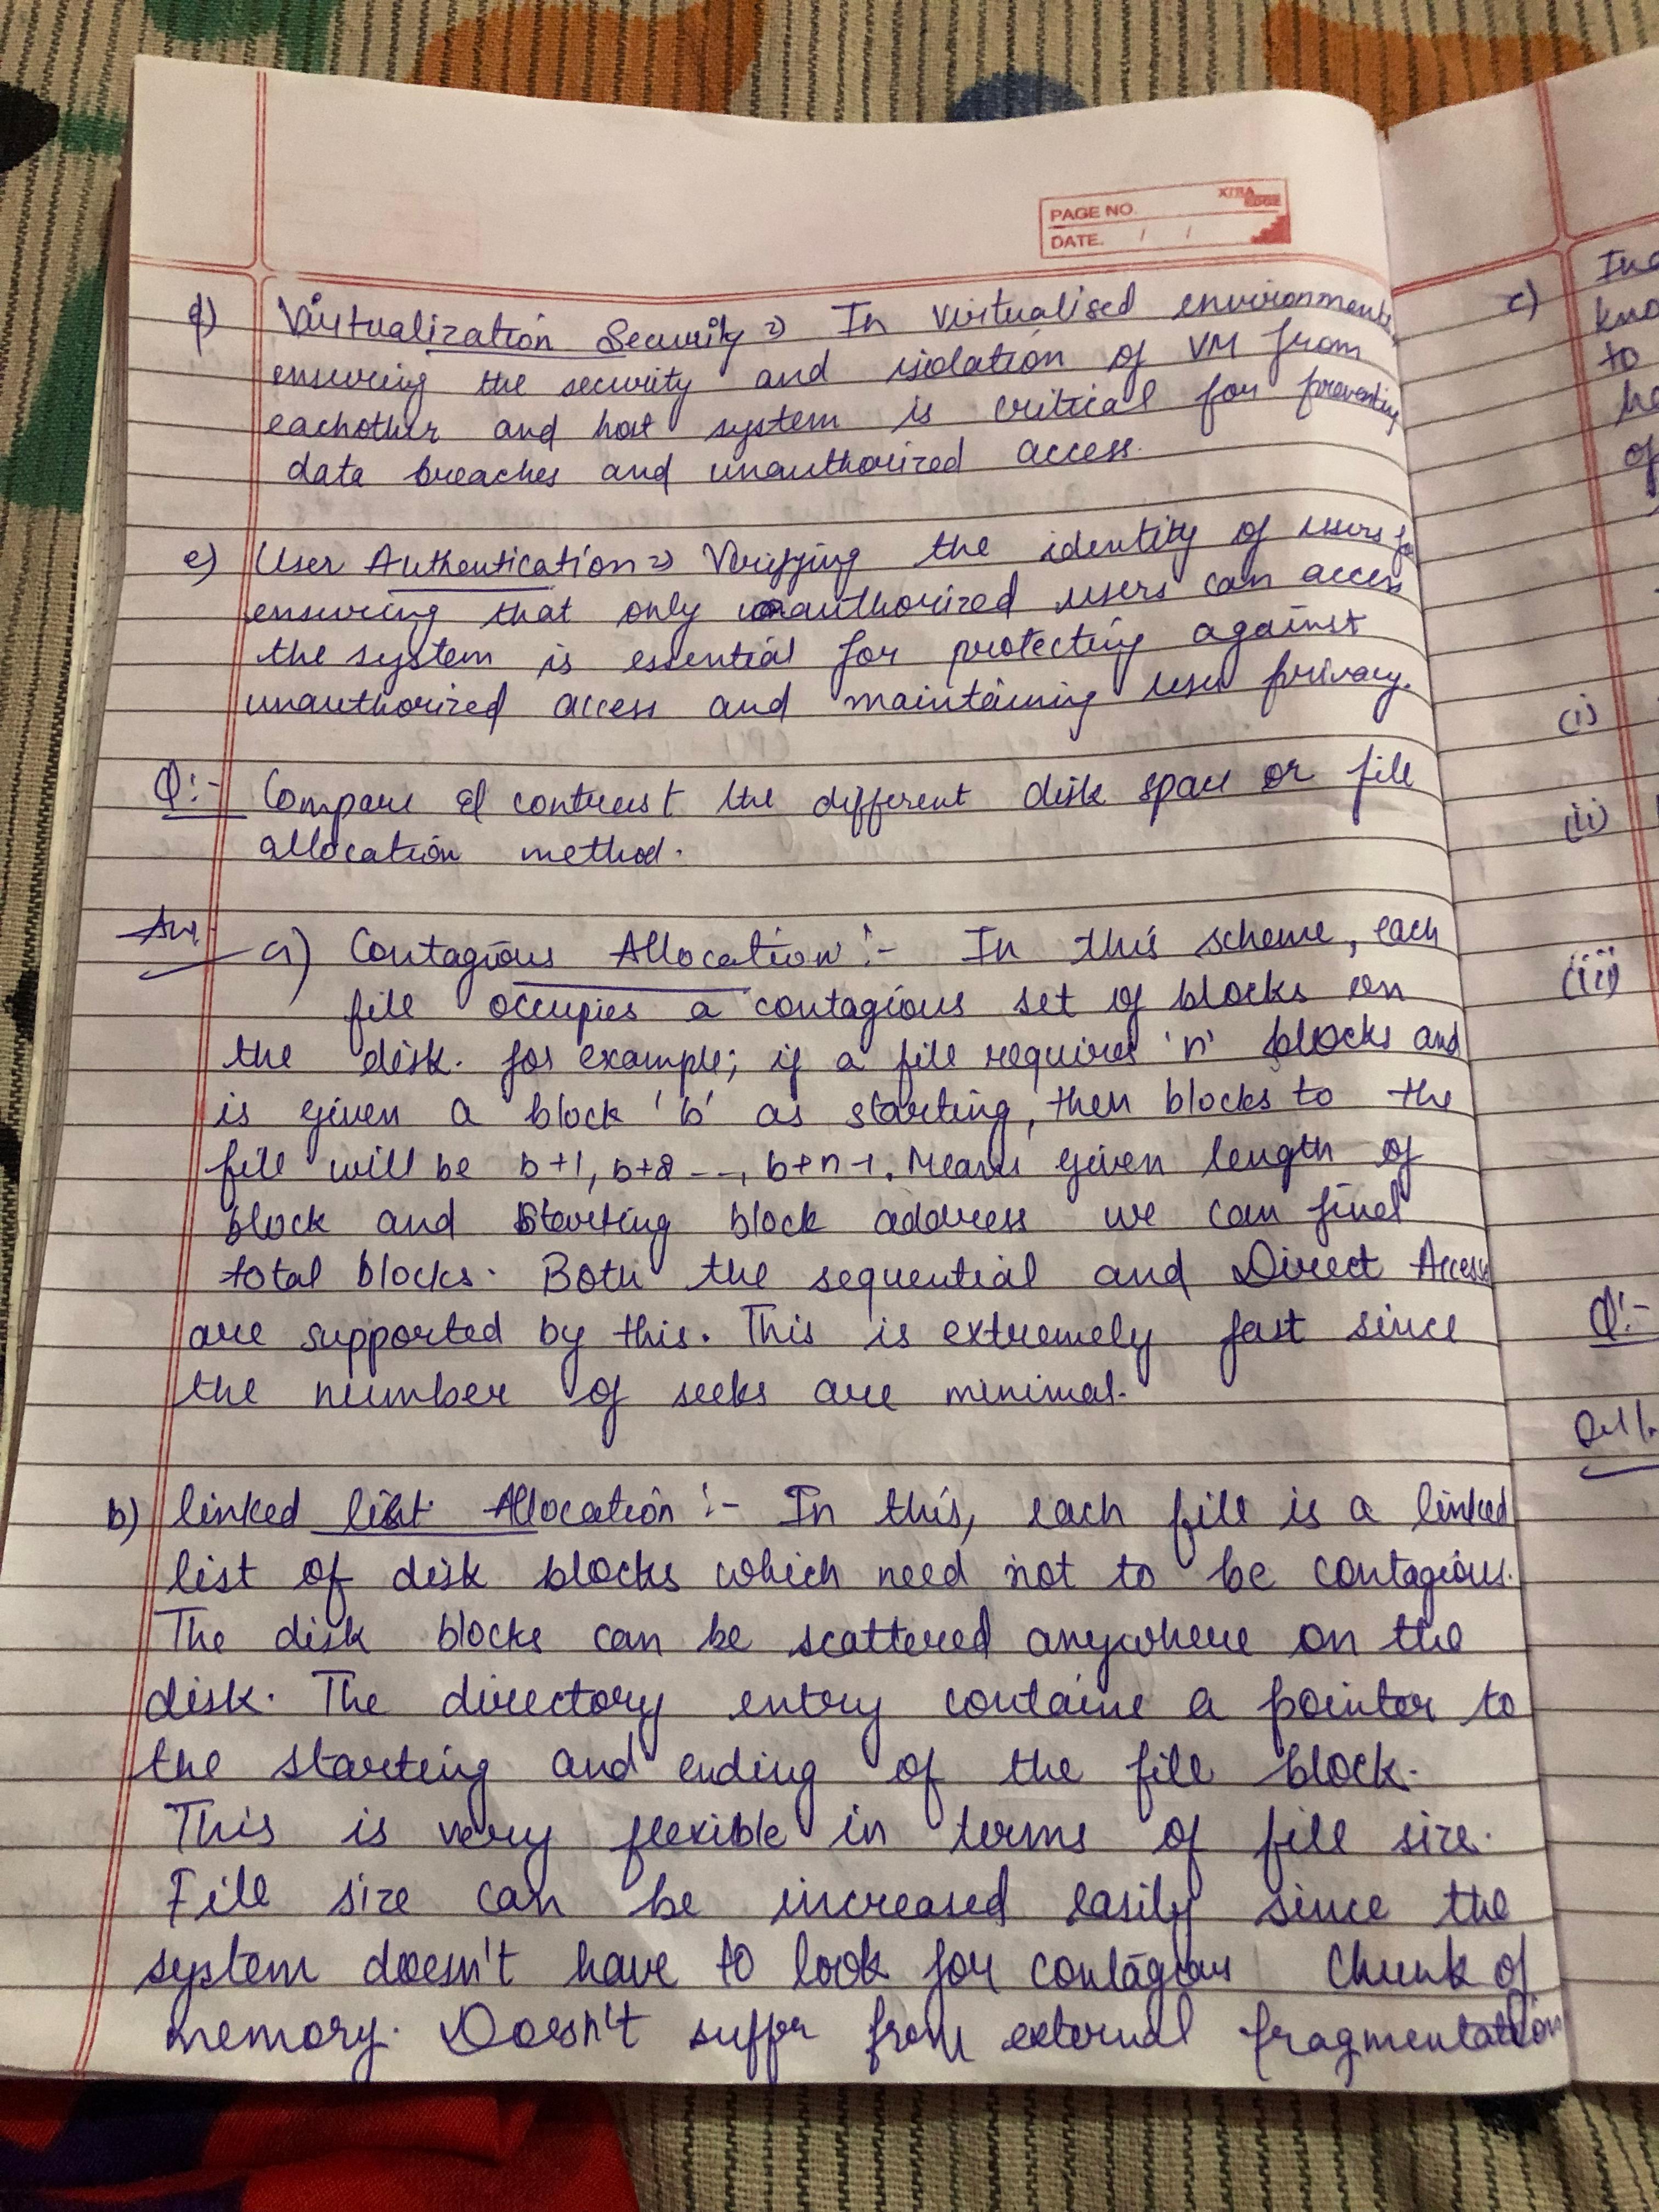 PAGE NO.
XTRA EDGE
DATE. / /
d) Virtualization Security => In virtualised environments,
ensuring the security and isolation of VM from
eachother and host system is critical for preventing
data breaches and unauthorized access.
e) User Authentication => Verifying the identity of users for
ensuring that only authorized users can access
the system is essential for protecting against
unauthorized access and maintaining user privacy.
Q:- Compare & contrast the different disk space or file
allocation method.
Ans. a) Contagious Allocation :- In this scheme, each
file occupies a contagious set of blocks on
the disk. for example; if a file requires 'n' blocks and
is given a block 'b' as starting, then blocks to the
file will be b+1, b+2 --, b+n-1. Means given length of
block and starting block address we can find
total blocks. Both the sequential and Direct Access
are supported by this. This is extremely fast since
the number of seeks are minimal.
b) linked list Allocation :- In this, each file is a linked
list of disk blocks which need not to be contagious.
The disk blocks can be scattered anywhere on the
disk. The directory entry contains a pointer to
the starting and ending of the file block.
This is very flexible in terms of file size.
File size can be increased easily since the
system doesn't have to look for contagious chunk of
memory. Doesn't suffer from external fragmentation
c)
to
of
(i)
(ii)
(iii)
Q:-